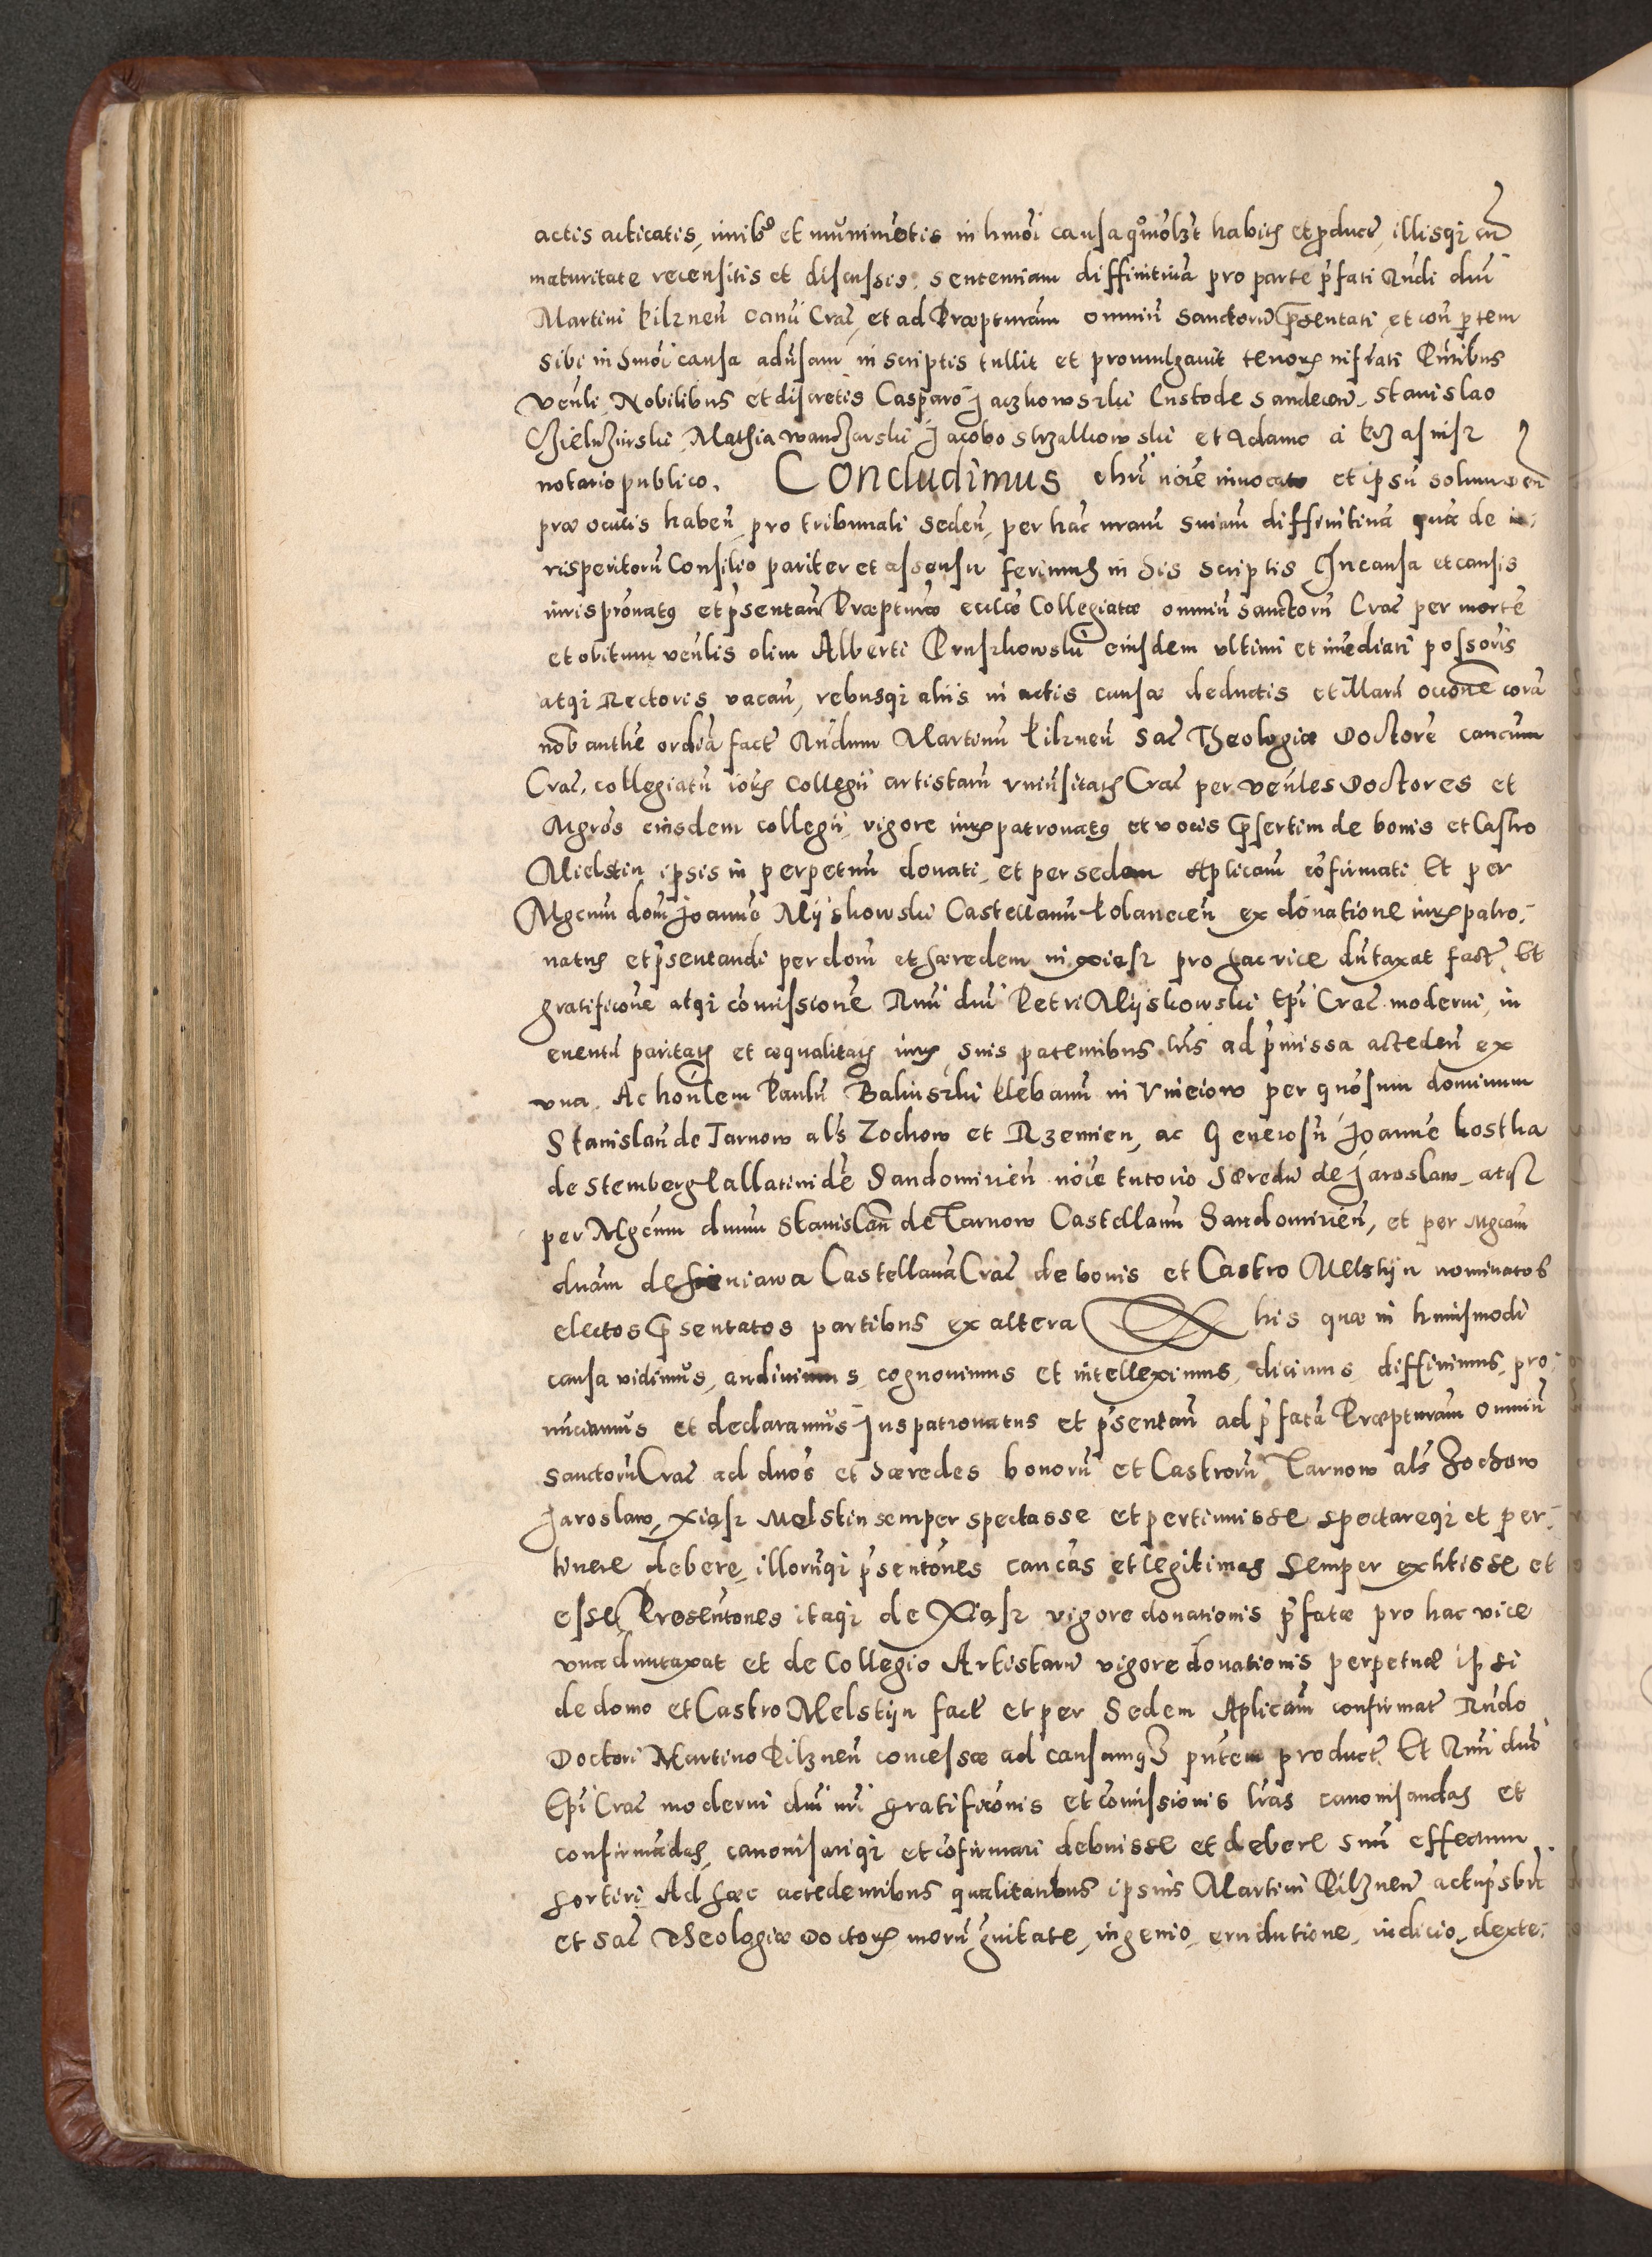 actis acticatis, iurib9 et munimẽtis in hmõi causa quõlzt habitis et product, illisq3 cũ
maturitate recensitis et discussis: sententiam diffinitiuã pro parte p̃fati Rñdi dñi
Martini Pilzneñ canci Crac̃, et ad Præpturam omniũ Sanctorũ p̃sentati, et con p̃tem
sibi in hmõi causa aduersam in scriptis tullit et promulgauit tenoris infrãti Pñtibus
Veñli, Nobilibus et discretis Casparo Jaczkowszki Custode Sandecen̄, Stanislao
Mathia Jacobo Strzalkowski et Adamo a
notario publico. Concludimus Chrĩ noĩe inuocato et ipsũ solum Deũ
præ oculis habeñ, pro tribunali sedeñ, per hãc nrãm sniam diffinitiuã quã de iu-
risperitorũ consilio pariter et assensu ferimus in his scriptis In causa et causis
iurispronatus et p̃sentañ Præpturæ ecclæ Collegiatæ omniũ sanctorũ Crac̃ per mortẽ
et obitum veñlis olim Alberti Pruszkowski eiusdem vltimi et imediati possoris
atq3 Rectoris vacañ, rebusq3 aliis in actis causæ deductis et illarũ occone corã
nob anthẽ ordiã fact Rñdum Martinũ Pilzneñ Sac̃ Theologiæ Doctorẽ cancum
Crac̃, collegiatũ Collegii artistarũ Vniuersitatis Crac̃ per veñles Doctores et
Mgros eiusdem collegii, vigore iuris patronatus et vocis p̃sertim de bonis et Castro
Mielstin ipsis in perpetuũ donati, et per sedem Aplicam cõfirmati Et per
Mgcum dom Joanne Myskowski Castellanũ Polanecen̄ ex donatione iuris patro-
natus et p̃sentandi per dom̃ et hæredem in Xiasz pro hac vice duntaxat fact. Et
gratificone atq3 cõmissione Rmi dni Petri Myskowski Epĩ Crac̃ moderni, in
euentũ paritatis et æqualitatis iuris, suis patentibus lrĩs ad p̃missa accedeñ ex
vna. Ac hoñlem Paulũ Plebanũ in Vnieiow per gnosum dominum
Stanislaũ de Tarnow als Zochow et Rzemien, ac Generosũ Joannẽ Kostka
de Stemberg Pallatinidẽ Sandomirieñ noĩe tutorio hæredũ de Jaroslaw, atq3
per Mgcum dnum Stanislañ de Tarnow Castellanũ Sandomirieñ, et per Mgcam
dnam de Sieniawa Castellanã Crac̃ de bonis et Castro Melstijn nominatos
electos p̃sentatos partibus ex altera his quæ in huiusmodi
causa vidimus, audiuimus, cognouimus et intelleximus, dicimus, diffinimus, pro-
nuciamus et declaramus Juspatronatus et p̃sentañ ad p̃fatã Præpturam omniũ
sanctorũ Crac̃ ad dnos et hæredes bonorũ et Castrorũ Tarnow als Zochow
Jaroslaw, Xiasz Melstin semper spectasse et pertinuisse spectareq3 et per-
tinere debere, illorũq3 p̃sentones cancas et legitimas semper extitisse et
esse, Presentones itaq3 de Xiasz vigore donationis p̃fatæ pro hac vice
vna duntaxat et de Collegio Artistarũ vigore donationis perpetuæ ipsi
de domo et Castro Melstijn fact et per Sedem Aplicam confirmat Rñdo
Doctori Martino Pilzneñ concessæ ad causamq3 pñtem product Et Rmi dni
Epĩ Crac̃ moderni dni nri gratificonis et cõmissionis lras canonisandas et
confirmãdas, canonisariq3 et cõfirmari debuisse et debere suũ effectum
sortiri Ad hæc accedentibus qualitatibus ipsius Martini Pilzneñ
et Sac̃ Theologiæ Doctoris morũ grauitate, ingenio, eruditione, iudicio, dexte-